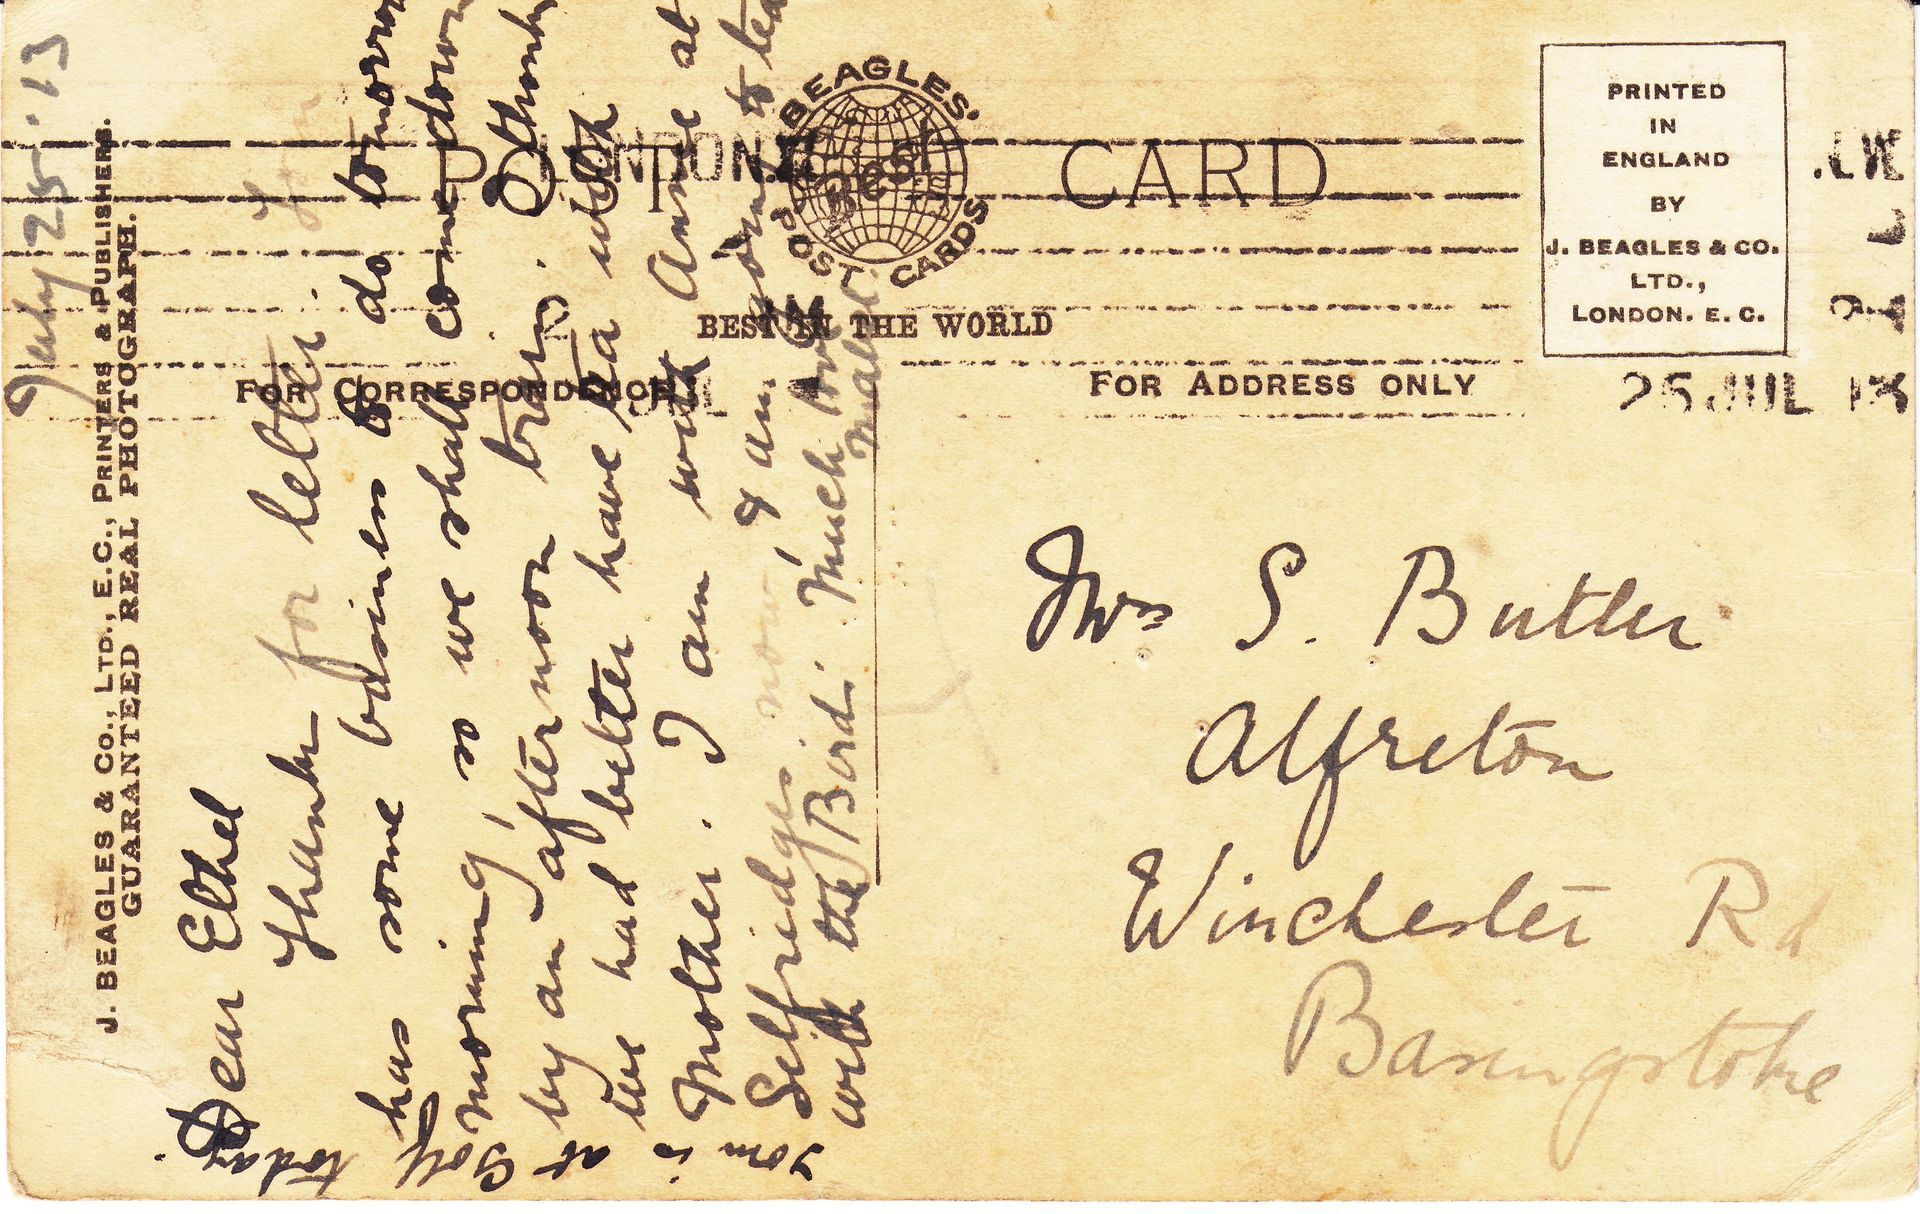 POST CARD
BEAGLES' POST CARDS
BEST IN THE WORLD
FOR CORRESPONDENCE
FOR ADDRESS ONLY
PRINTED
IN
ENGLAND
BY
J. BEAGLES & CO.
LTD.,
LONDON. E. C.
LONDON.
25 JUL 13
J. BEAGLES & CO., LTD., E.C., PRINTERS & PUBLISHERS.
GUARANTEED REAL PHOTOGRAPH.
July 25. '13
Dear Ethel
Thanks for letter. Tom
has some business to do tomorrow
morning, so we shall come down
by an afternoon train. I thought
we had better have tea with
Mother. I am with Annie at
Selfridges now, & am going to tea
with the Bird. Much love
Mabel.
Mrs S. Butler
Alfreton
Winchester Rd
Basingstoke